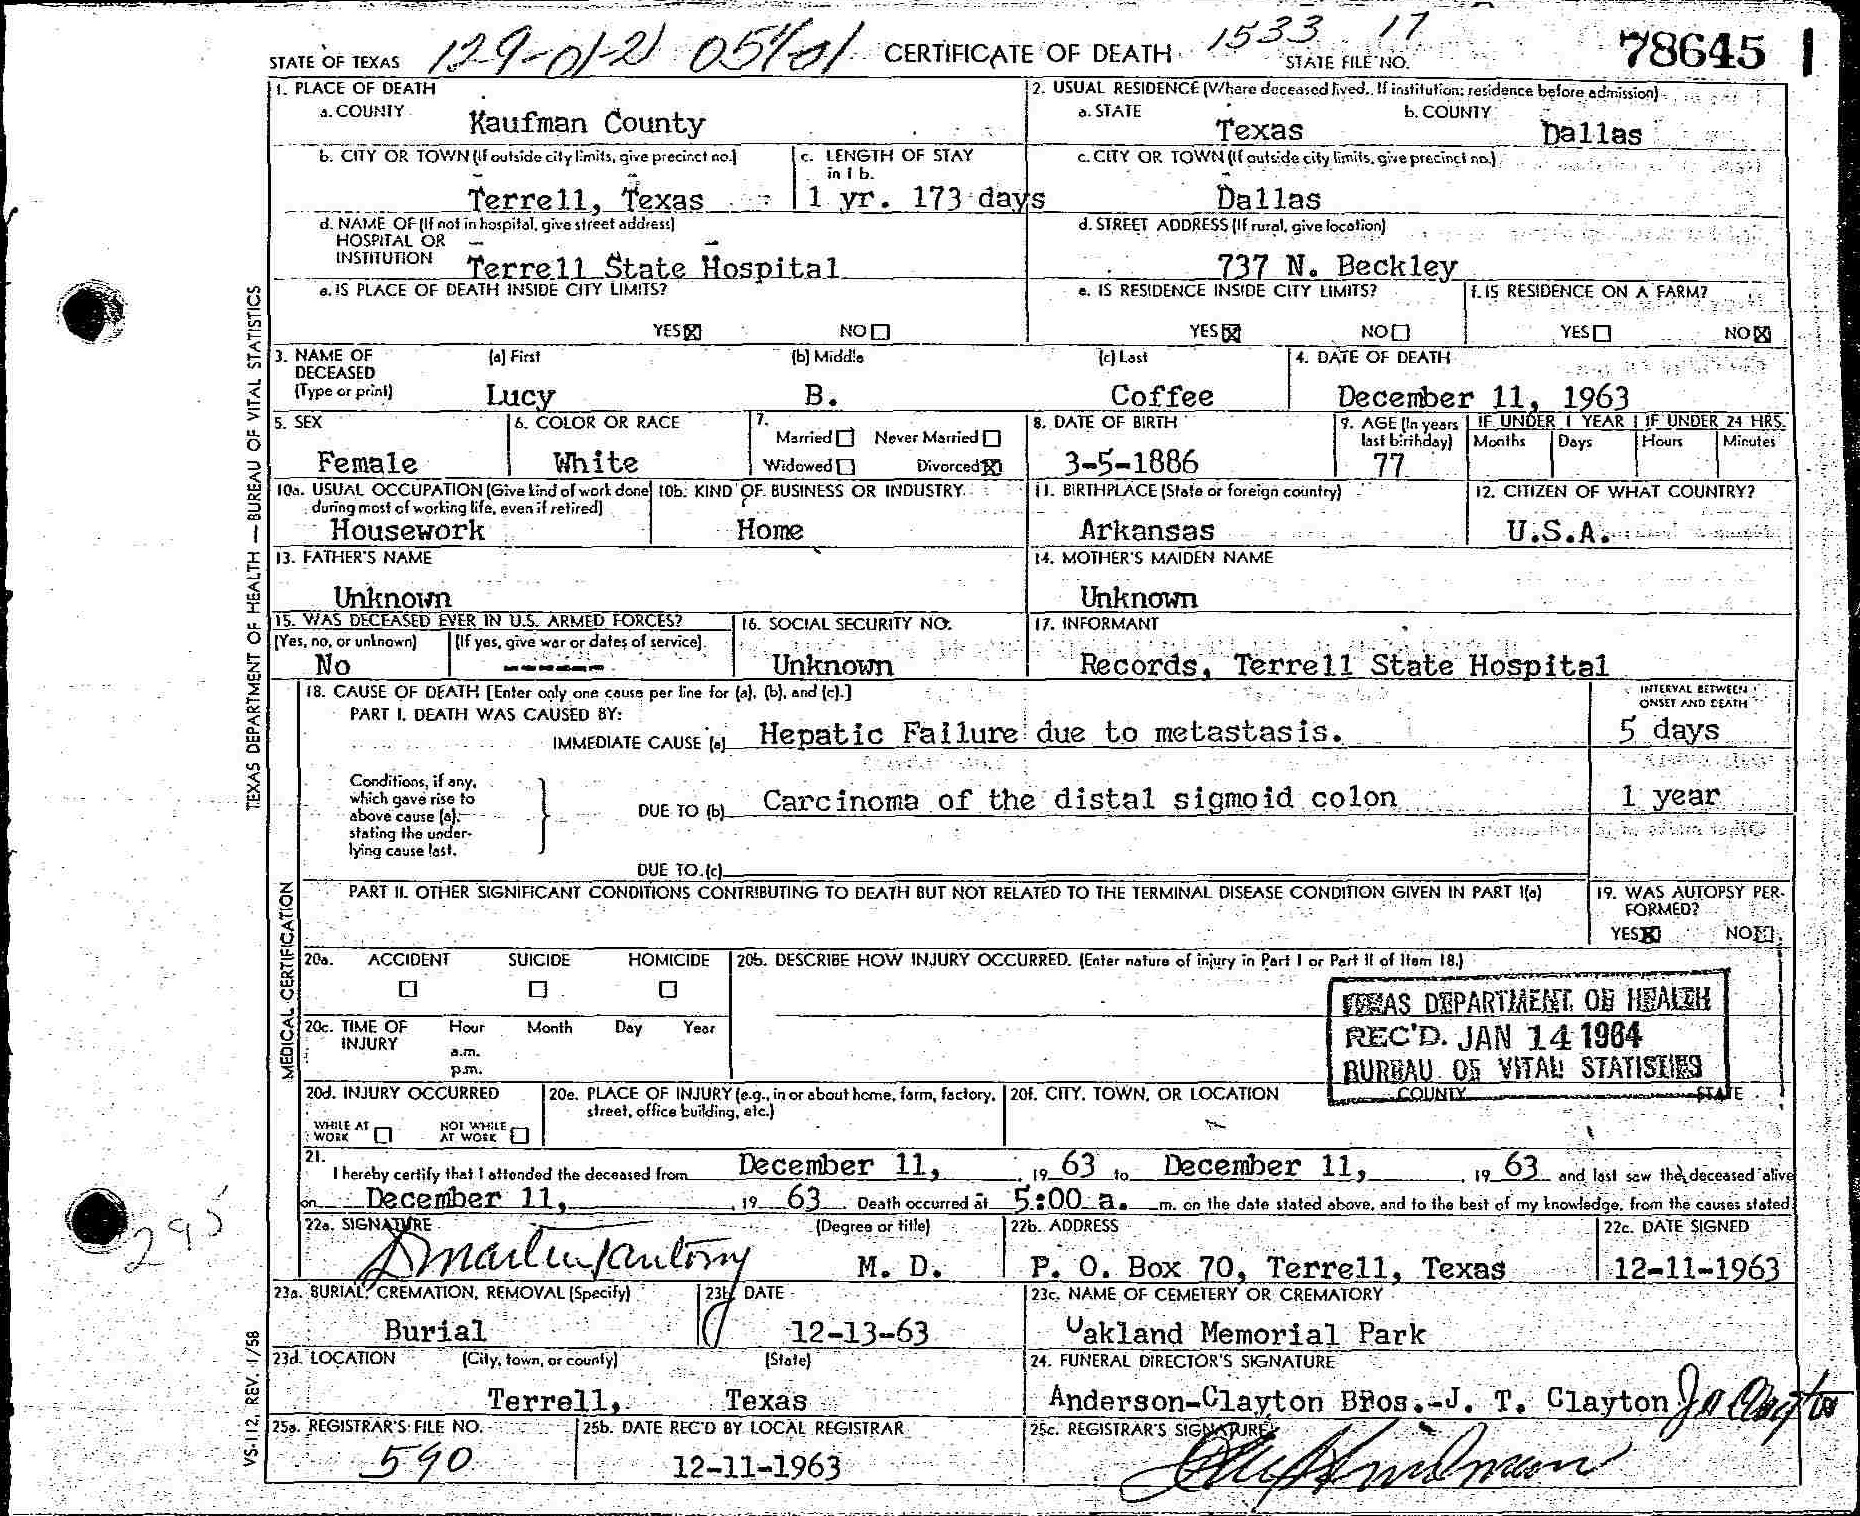 STATE OF TEXAS 129-01-21 05401 CERTIFICATE OF DEATH 1533 17 STATE FILE NO. 78645
1. PLACE OF DEATH
a. COUNTY Kaufman County
2. USUAL RESIDENCE (Where deceased lived. If institution: residence before admission)
a. STATE Texas b. COUNTY Dallas
b. CITY OR TOWN (If outside city limits, give precinct no.) Terrell, Texas
c. LENGTH OF STAY in 1 b. 1 yr. 173 days
c. CITY OR TOWN (If outside city limits, give precinct no.) Dallas
d. NAME OF (If not in hospital, give street address)
HOSPITAL OR
INSTITUTION Terrell State Hospital
d. STREET ADDRESS (If rural, give location)
737 N. Beckley
e. IS PLACE OF DEATH INSIDE CITY LIMITS?
YES ☒ NO ☐
e. IS RESIDENCE INSIDE CITY LIMITS?
YES ☒ NO ☐
f. IS RESIDENCE ON A FARM?
YES ☐ NO ☒
3. NAME OF DECEASED (Type or print)
(a) First (b) Middle (c) Last
Lucy B. Coffee
4. DATE OF DEATH
December 11, 1963
5. SEX
Female
6. COLOR OR RACE
White
7.
Married ☐ Never Married ☐
Widowed ☐ Divorced ☒
8. DATE OF BIRTH
3-5-1886
9. AGE (In years last birthday)
77
IF UNDER 1 YEAR IF UNDER 24 HRS.
Months Days Hours Minutes
10a. USUAL OCCUPATION (Give kind of work done during most of working life, even if retired)
Housework
10b. KIND OF BUSINESS OR INDUSTRY
Home
11. BIRTHPLACE (State or foreign country)
Arkansas
12. CITIZEN OF WHAT COUNTRY?
U.S.A.
13. FATHER'S NAME
Unknown
14. MOTHER'S MAIDEN NAME
Unknown
15. WAS DECEASED EVER IN U.S. ARMED FORCES?
(Yes, no, or unknown) (If yes, give war or dates of service)
No ------
16. SOCIAL SECURITY NO.
Unknown
17. INFORMANT
Records, Terrell State Hospital
18. CAUSE OF DEATH [Enter only one cause per line for (a), (b), and (c).]
PART I. DEATH WAS CAUSED BY:
IMMEDIATE CAUSE (a) Hepatic Failure due to metastasis.
INTERVAL BETWEEN ONSET AND DEATH
5 days
Conditions, if any,
which gave rise to
above cause (a),
stating the under-
lying cause last.
DUE TO (b) Carcinoma of the distal sigmoid colon 1 year
DUE TO (c)
PART II. OTHER SIGNIFICANT CONDITIONS CONTRIBUTING TO DEATH BUT NOT RELATED TO THE TERMINAL DISEASE CONDITION GIVEN IN PART I(a)
19. WAS AUTOPSY PER-
FORMED?
YES ☒ NO ☐
20a. ACCIDENT SUICIDE HOMICIDE
☐ ☐ ☐
20b. DESCRIBE HOW INJURY OCCURRED. (Enter nature of injury in Part I or Part II of Item 18.)
TEXAS DEPARTMENT OF HEALTH
REC'D. JAN 14 1964
BUREAU OF VITAL STATISTICS
20c. TIME OF INJURY Hour Month Day Year
a.m.
p.m.
20d. INJURY OCCURRED
WHILE AT WORK ☐ NOT WHILE AT WORK ☐
20e. PLACE OF INJURY (e.g., in or about home, farm, factory, street, office building, etc.)
20f. CITY, TOWN, OR LOCATION COUNTY STATE
21.
I hereby certify that I attended the deceased from December 11, 19 63 to December 11, 19 63 and last saw the deceased alive
on December 11, 19 63 Death occurred at 5:00 a. m. on the date stated above, and to the best of my knowledge, from the causes stated
22a. SIGNATURE (Degree or title)
M. D.
22b. ADDRESS
P. O. Box 70, Terrell, Texas
22c. DATE SIGNED
12-11-1963
23a. BURIAL, CREMATION, REMOVAL (Specify)
Burial
23b. DATE
12-13-63
23c. NAME OF CEMETERY OR CREMATORY
Oakland Memorial Park
23d. LOCATION (City, town, or county) (State)
Terrell, Texas
24. FUNERAL DIRECTOR'S SIGNATURE
Anderson-Clayton Bros.-J. T. Clayton
25a. REGISTRAR'S FILE NO.
590
25b. DATE REC'D BY LOCAL REGISTRAR
12-11-1963
25c. REGISTRAR'S SIGNATURE
TEXAS DEPARTMENT OF HEALTH — BUREAU OF VITAL STATISTICS
MEDICAL CERTIFICATION
VS-112, REV. 1/58
295